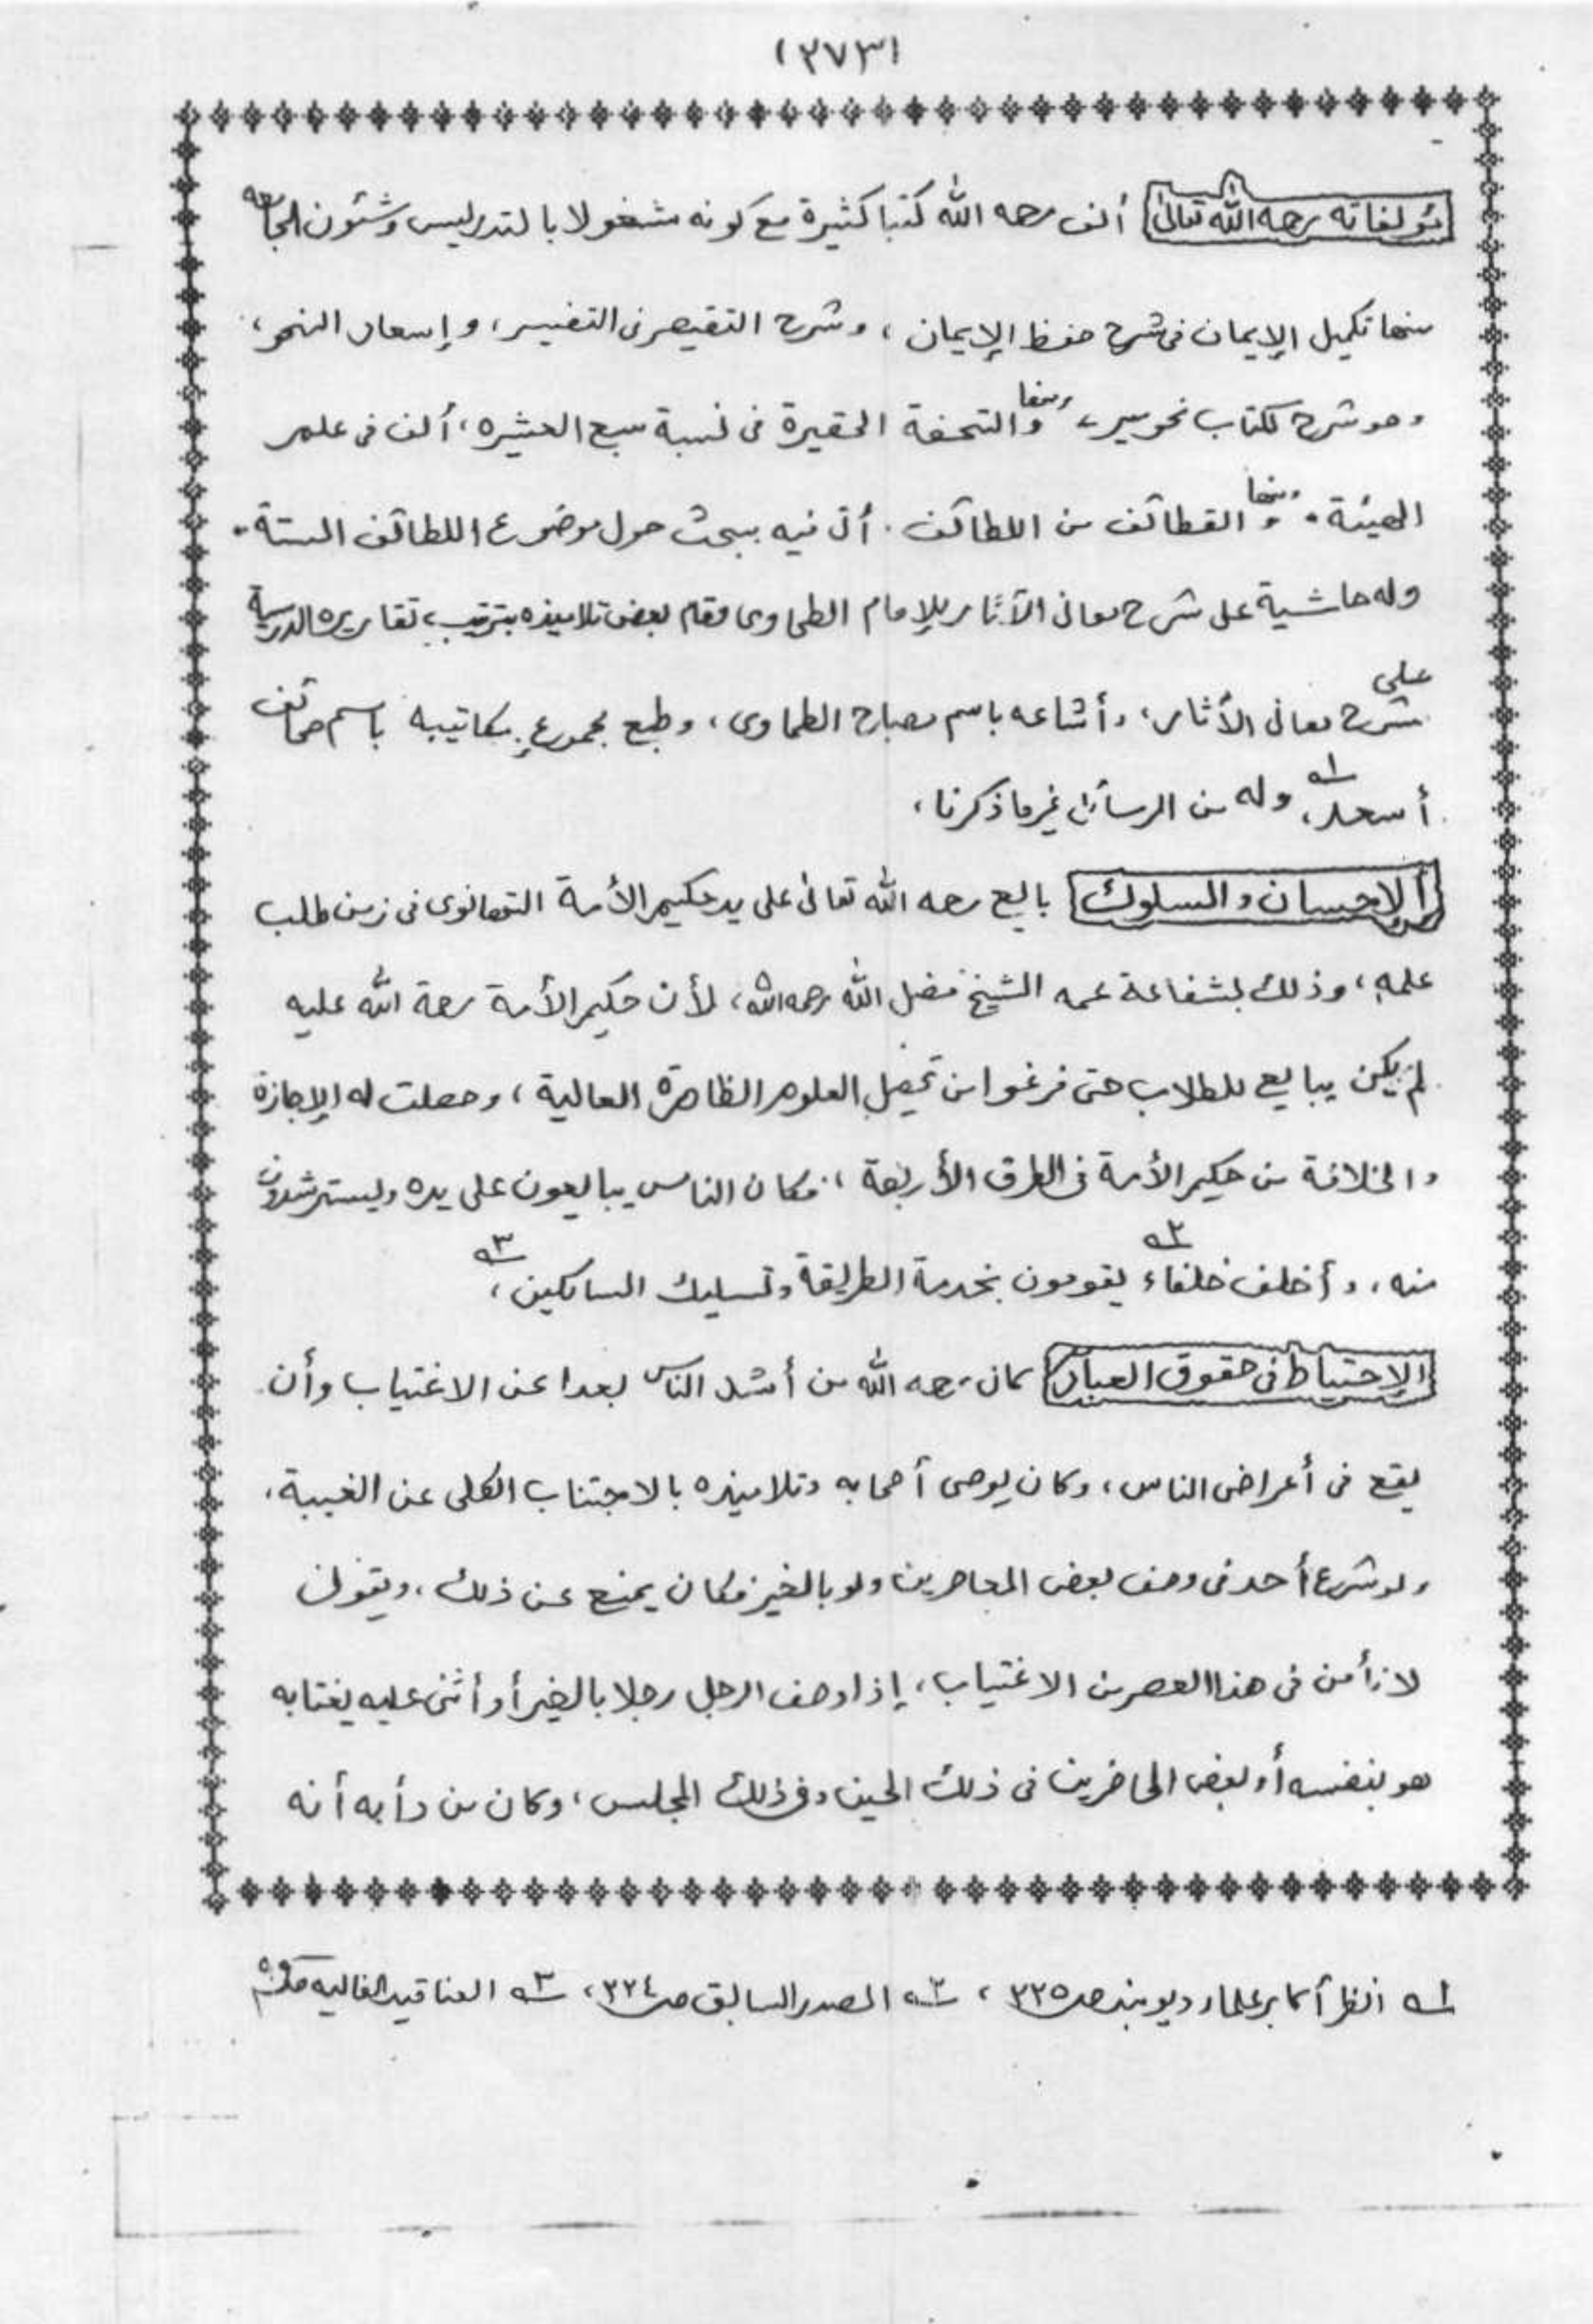 (٢٧٣)
مؤلفاته رحمه الله تعالى ألف رحمه الله كتبا كثيرة مع كونه مشغولا بالتدريس وشئون الجامعه
منها تكميل الإيمان فى شرح حفظ الإيمان ، وشرح التقصير فى التفسير ، و إسعاد النحو ،
وهو شرح لكتاب نحومير ، ومنها والتحفة الحقيرة فى نسبة سبع العشيره ، ألف فى علم
الهيئة . ومنها و القطائف من اللطائف . أتى فيه ببحث حول موضوع اللطائف الستة .
وله حاشية على شرح معانى الآثار للإمام الطحاوى وقام بعض تلاميذه بترتيب تقاريره الدرسية
على شرح معانى الأثار ، وأشاعه باسم مصباح الطحاوى ، وطبع مجموع مكاتيبه باسم صحائف
أسعد ، ١ه وله من الرسائل غير ما ذكرنا ،
الإحسان والسلوك بايع رحمه الله تعالى على يد حكيم الأمة التهانوى فى زمن طلب
علمه ، وذلك بشفاعة عمه الشيخ فضل الله رحمه الله ، لأن حكيم الأمة رحمة الله عليه
لم يكن يبايع للطلاب حتى فرغوا من تحصيل العلوم الظاهرة العالية ، وحصلت له الإجازة
والخلافة من حكيم الأمة فى الطرق الأربعة ، فكان الناس يبايعون على يده ويسترشدون
منه ، وأخلف خلفاء ٢ه يقومون بخدمة الطريقة وتسليك السالكين ، ٣ه
الإحتياط فى حقوق العباد كان رحمه الله من أشد الناس بعدا عن الاغتياب وأن
يقع فى أعراض الناس ، وكان يوصى أصحابه وتلاميذه بالاجتناب الكلى عن الغيبة ،
ولو شرع أحد فى وصف بعض المعاصرين ولو بالخير فكان يمنع عن ذلك ، ويقول
لا نأمن فى هذا العصر من الاغتياب ، إذا وصف الرجل رجلا بالخير أو أثنى عليه يغتابه
هو بنفسه أو بعض الحاضرين فى ذلك الحين وفى ذلك المجلس ، وكان من دأبه أنه
١ه انظر أكابر علماء ديوبند صـ ٣٣٥ ، ٢ه المصدر السابق صـ ٣٣٤ ، ٣ه العناقيد الغاليه